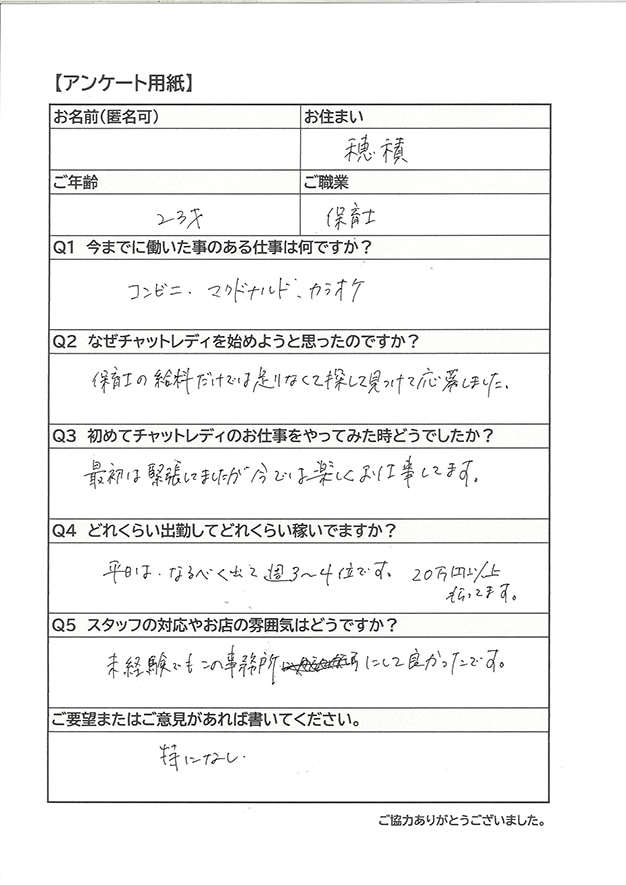 【アンケート用紙】
お名前(匿名可)
お住まい
穂積
ご年齢
ご職業
23才
保育士
Q1 今までに働いた事のある仕事は何ですか？
コンビニ、マクドナルド、カラオケ
Q2 なぜチャットレディを始めようと思ったのですか？
保育士の給料だけでは足りなくて探して見つけて応募しました。
Q3 初めてチャットレディのお仕事をやってみた時どうでしたか？
最初は緊張してましたが今では楽しくお仕事してます。
Q4 どれくらい出勤してどれくらい稼いでますか？
平日は、なるべく出て週3〜4位です。 20万円以上
もらってます。
Q5 スタッフの対応やお店の雰囲気はどうですか？
未経験でもこの事務所にして良かったです。
ご要望またはご意見があれば書いてください。
特になし。
ご協力ありがとうございました。